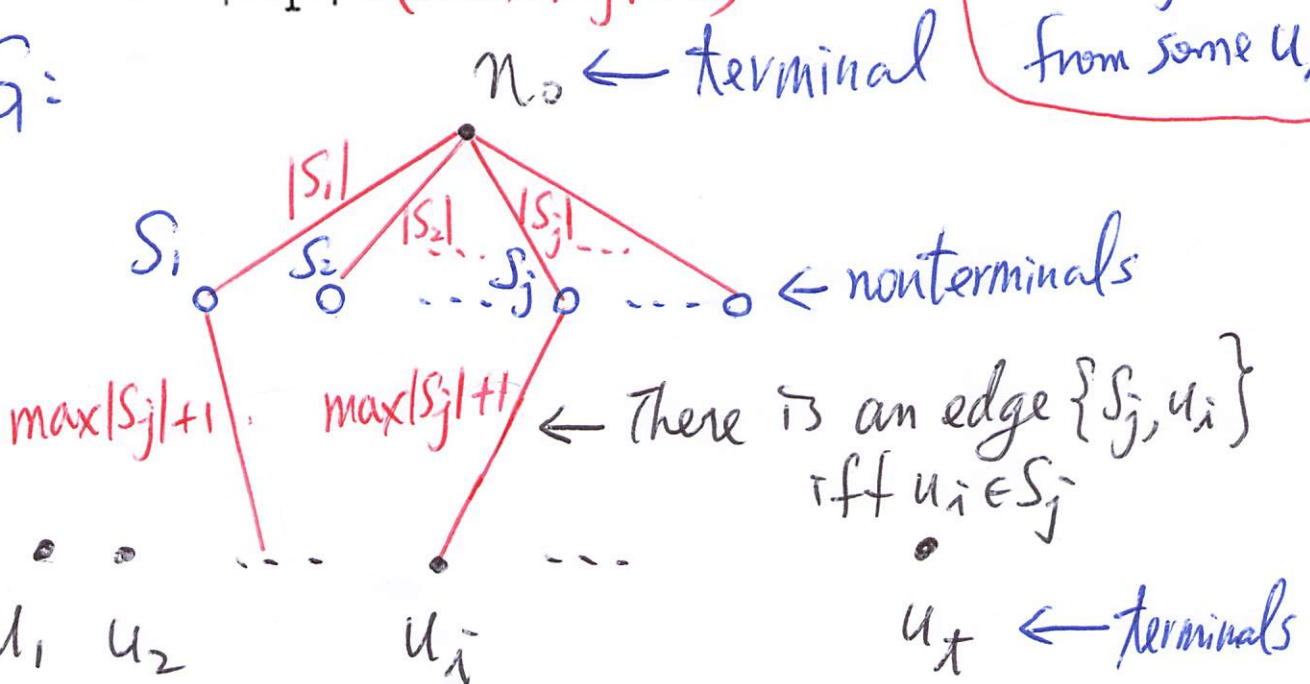 n₀ ← terminal
from some u
G:
|S₁|
|S₂| ....
|Sⱼ| ....
S₁
S₂
.... Sⱼ
....
← nonterminals
max|Sⱼ|+1
max|Sⱼ|+1
← There is an edge {Sⱼ, uᵢ}
iff uᵢ ∈ Sⱼ
....
....
u₁
u₂
uᵢ
uₜ ← terminals